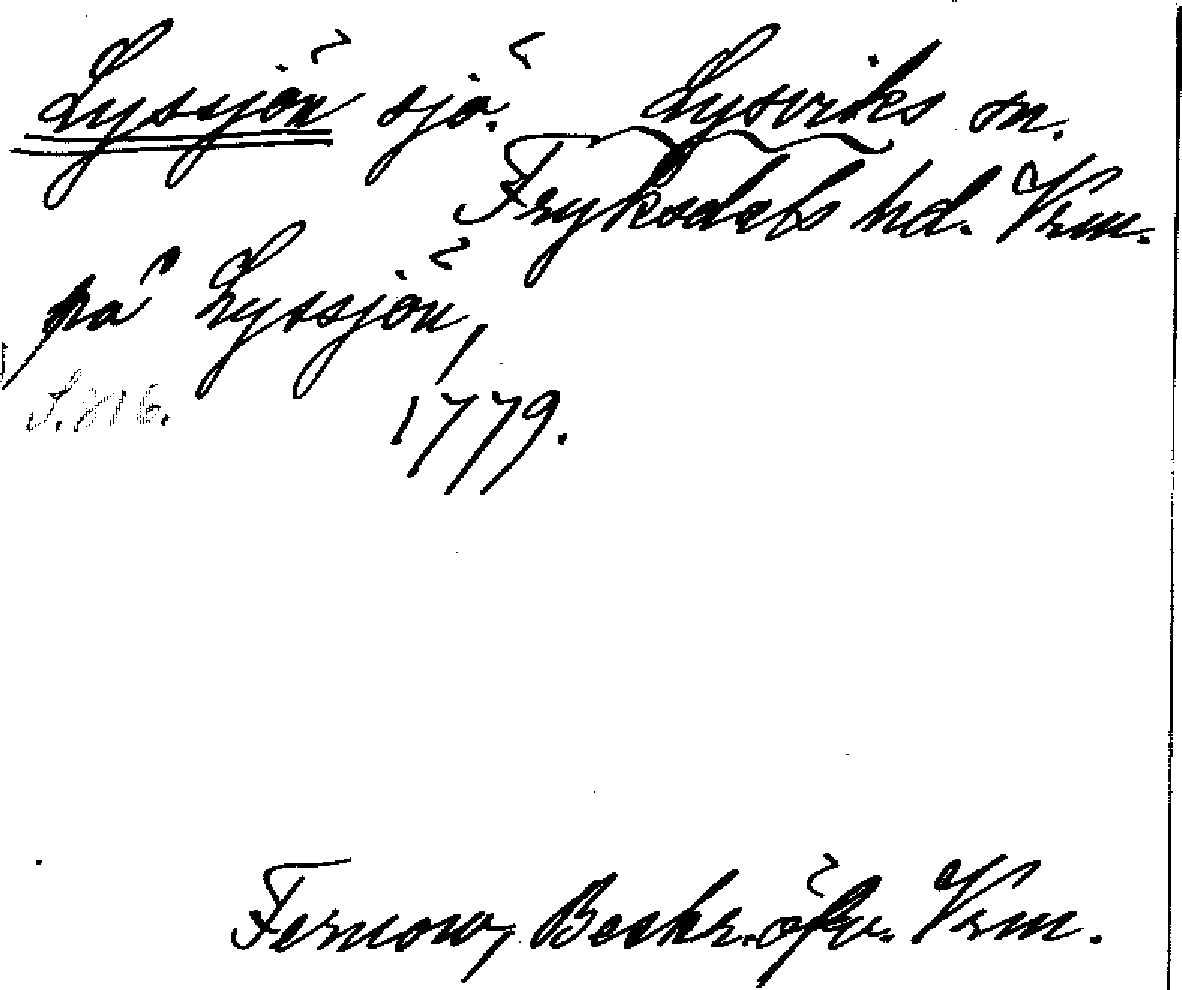 Lyssjön sjö. Lysviks sn.
Fryksdals hd. Vrm.
på Lyssjön,
S. 216.
1779.
Fernow, Beskr. öfv. Vrm.